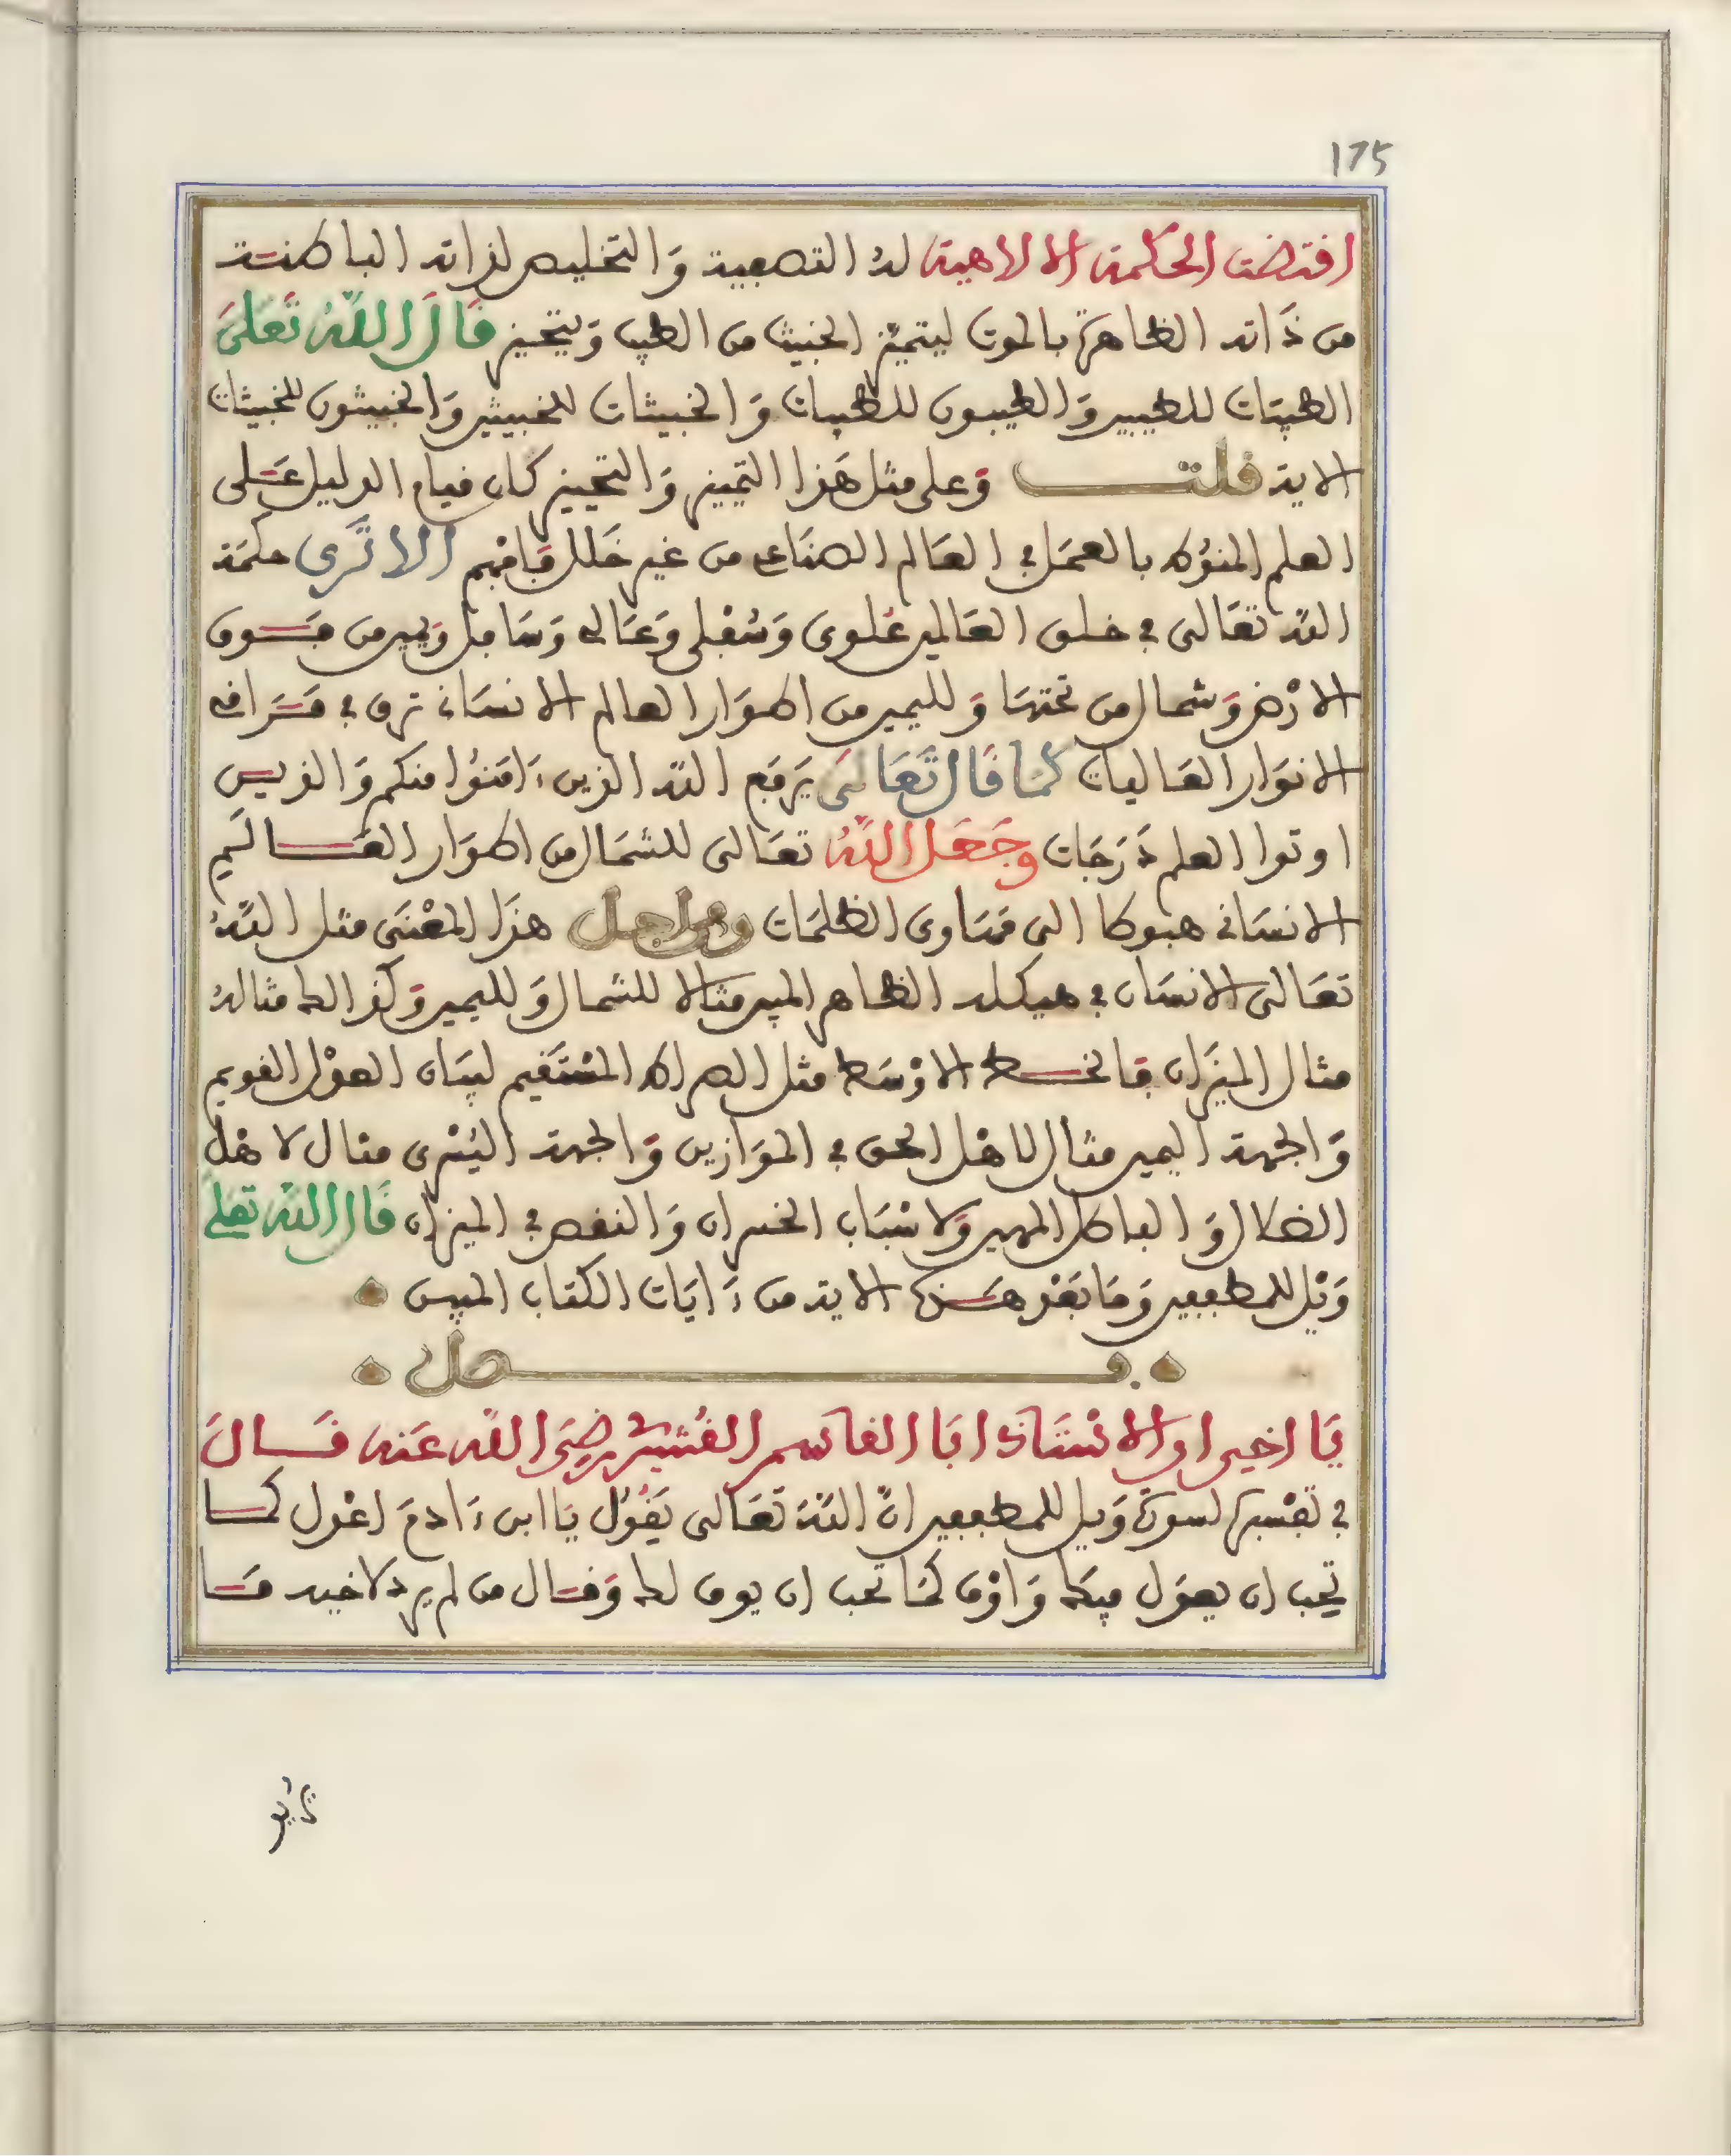 175
اقتضت الحكمة الالاهية له التصفية والتخليص لذاته الباطنة
من ذاته الظاهرة بالموت ليتميّز الخبيث من الطيب ويتحيز قال الله تعلى
الطيبات للطيبين والطيبون للطيبات والخبيثات للخبيثين والخبيثون للخبيثات
الاية قلت وعلى مثل هذا التمييز والتحييز كان قيام الدليل على
العلم المنوط بالعمل في العالم الصناعي من غير خلل فافهم الا ترى حكمة
الله تعالى في خلق العالمين علوي وسفلي وعالي وسافل ويمين من فوق
الارض وشمال من تحتها ولليمين من اطوار العالم الانساني ترق في مراقي
الانوار العاليات كما قال تعالى يرفع الله الذين ءامنوا منكم والذين
اوتوا العلم درجات وجعل الله تعالى للشمال من اطوار العالم
الانساني هبوطا الى مهاوي الظلمات ومن اجل هذا المعنى مثل الله
تعالى الانسان في هيكله الظاهر المبين مثالا للشمال ولليمين وكذالك مثاله
مثال الميزان فالخط الاوسط مثل الصراط المستقيم لبيان العدل القويم
والجهة اليمين مثال لاهل الحق في الموازين والجهة اليسرى مثال لاهل
الضلال والباطل المهين ولاسباب الخسران والنقص في الميزان قال الله تعلى
ويل للمطففين وما بعد هذه الاية من ءايات الكتاب المبين
فصل
يا اخي ان الاستاذ ابا القاسم القشيري رضي الله عنه قال
في تفسيره لسورة ويل للمطففين ان الله تعالى يقول يا ابن ءادم اعدل كما
تحب ان يعدل فيك واوف كما تحب ان يوف لك وقال من لم يرد لاخيه ما